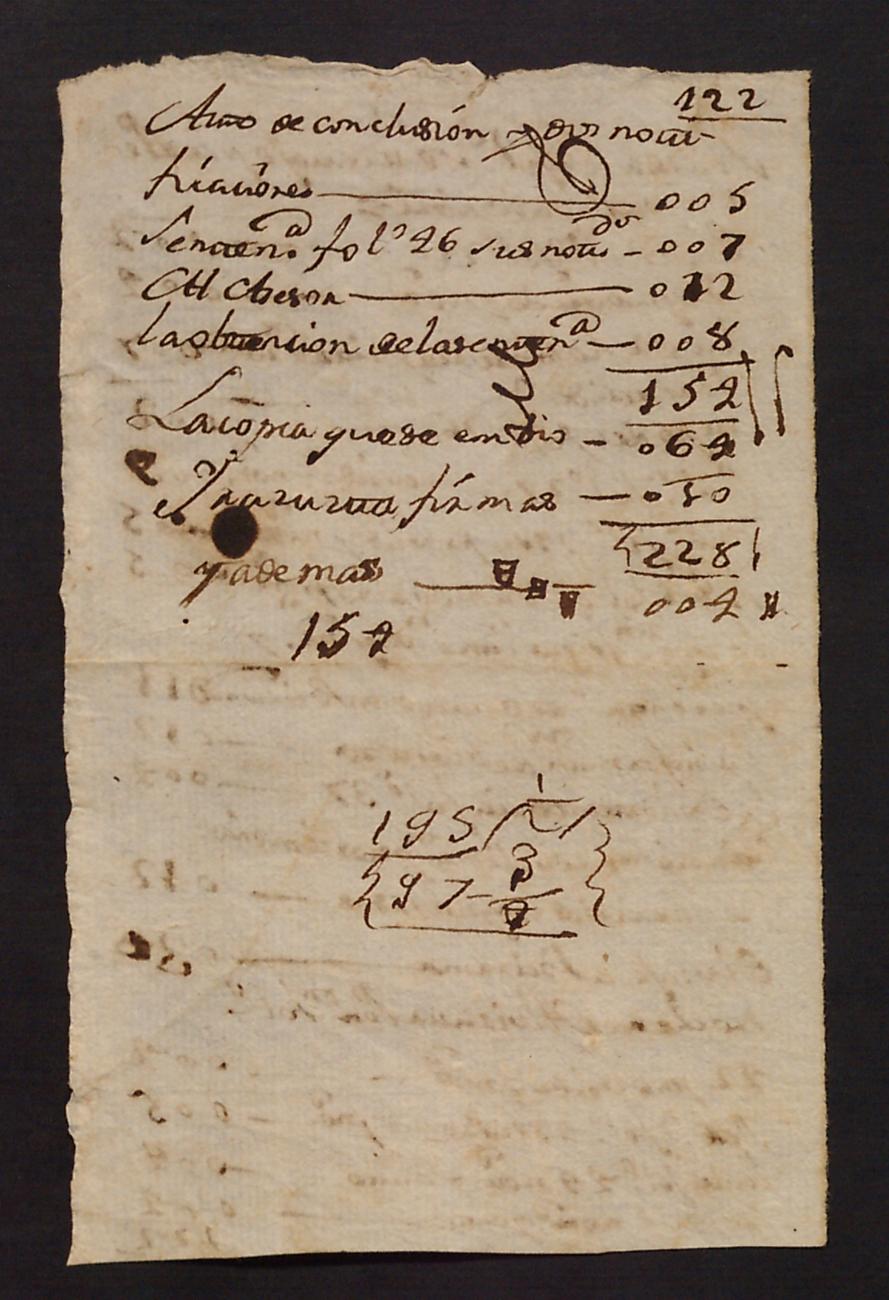 122
Auto de conclusión y dos noti
ficaciones 005
Senten.ª fol.º 46 sus notᵈᵒ 007
Al Asesor 012
la obtencion de la sentenª 008
154
La copia que se em dio 064
y firmas 010
228
y ademas 004
154
195 / 2
97